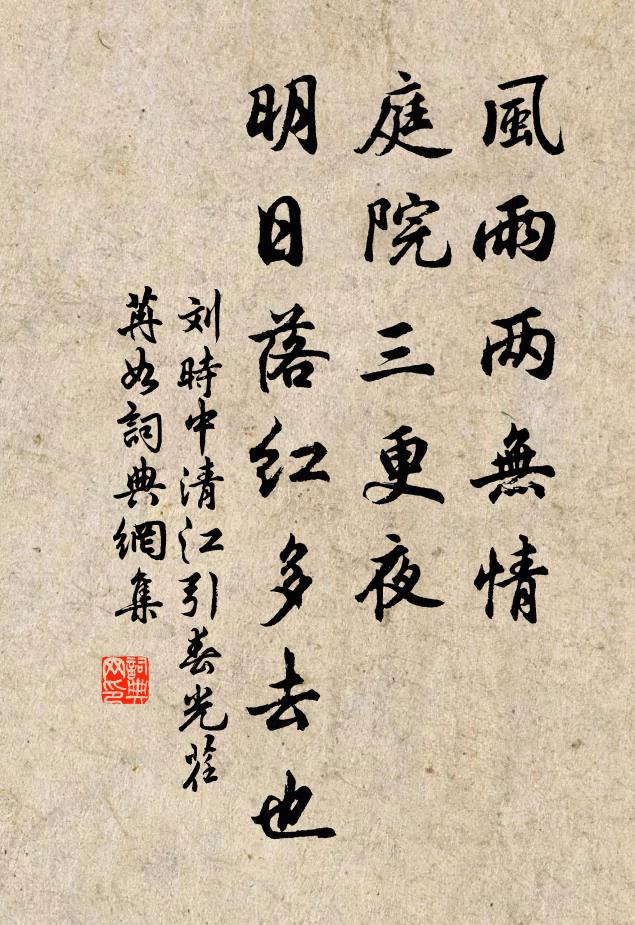 風雨兩無情
庭院三更夜
明日落紅多去也
刘時中清江引春光荏
苒如詞典網集
詞典
网印